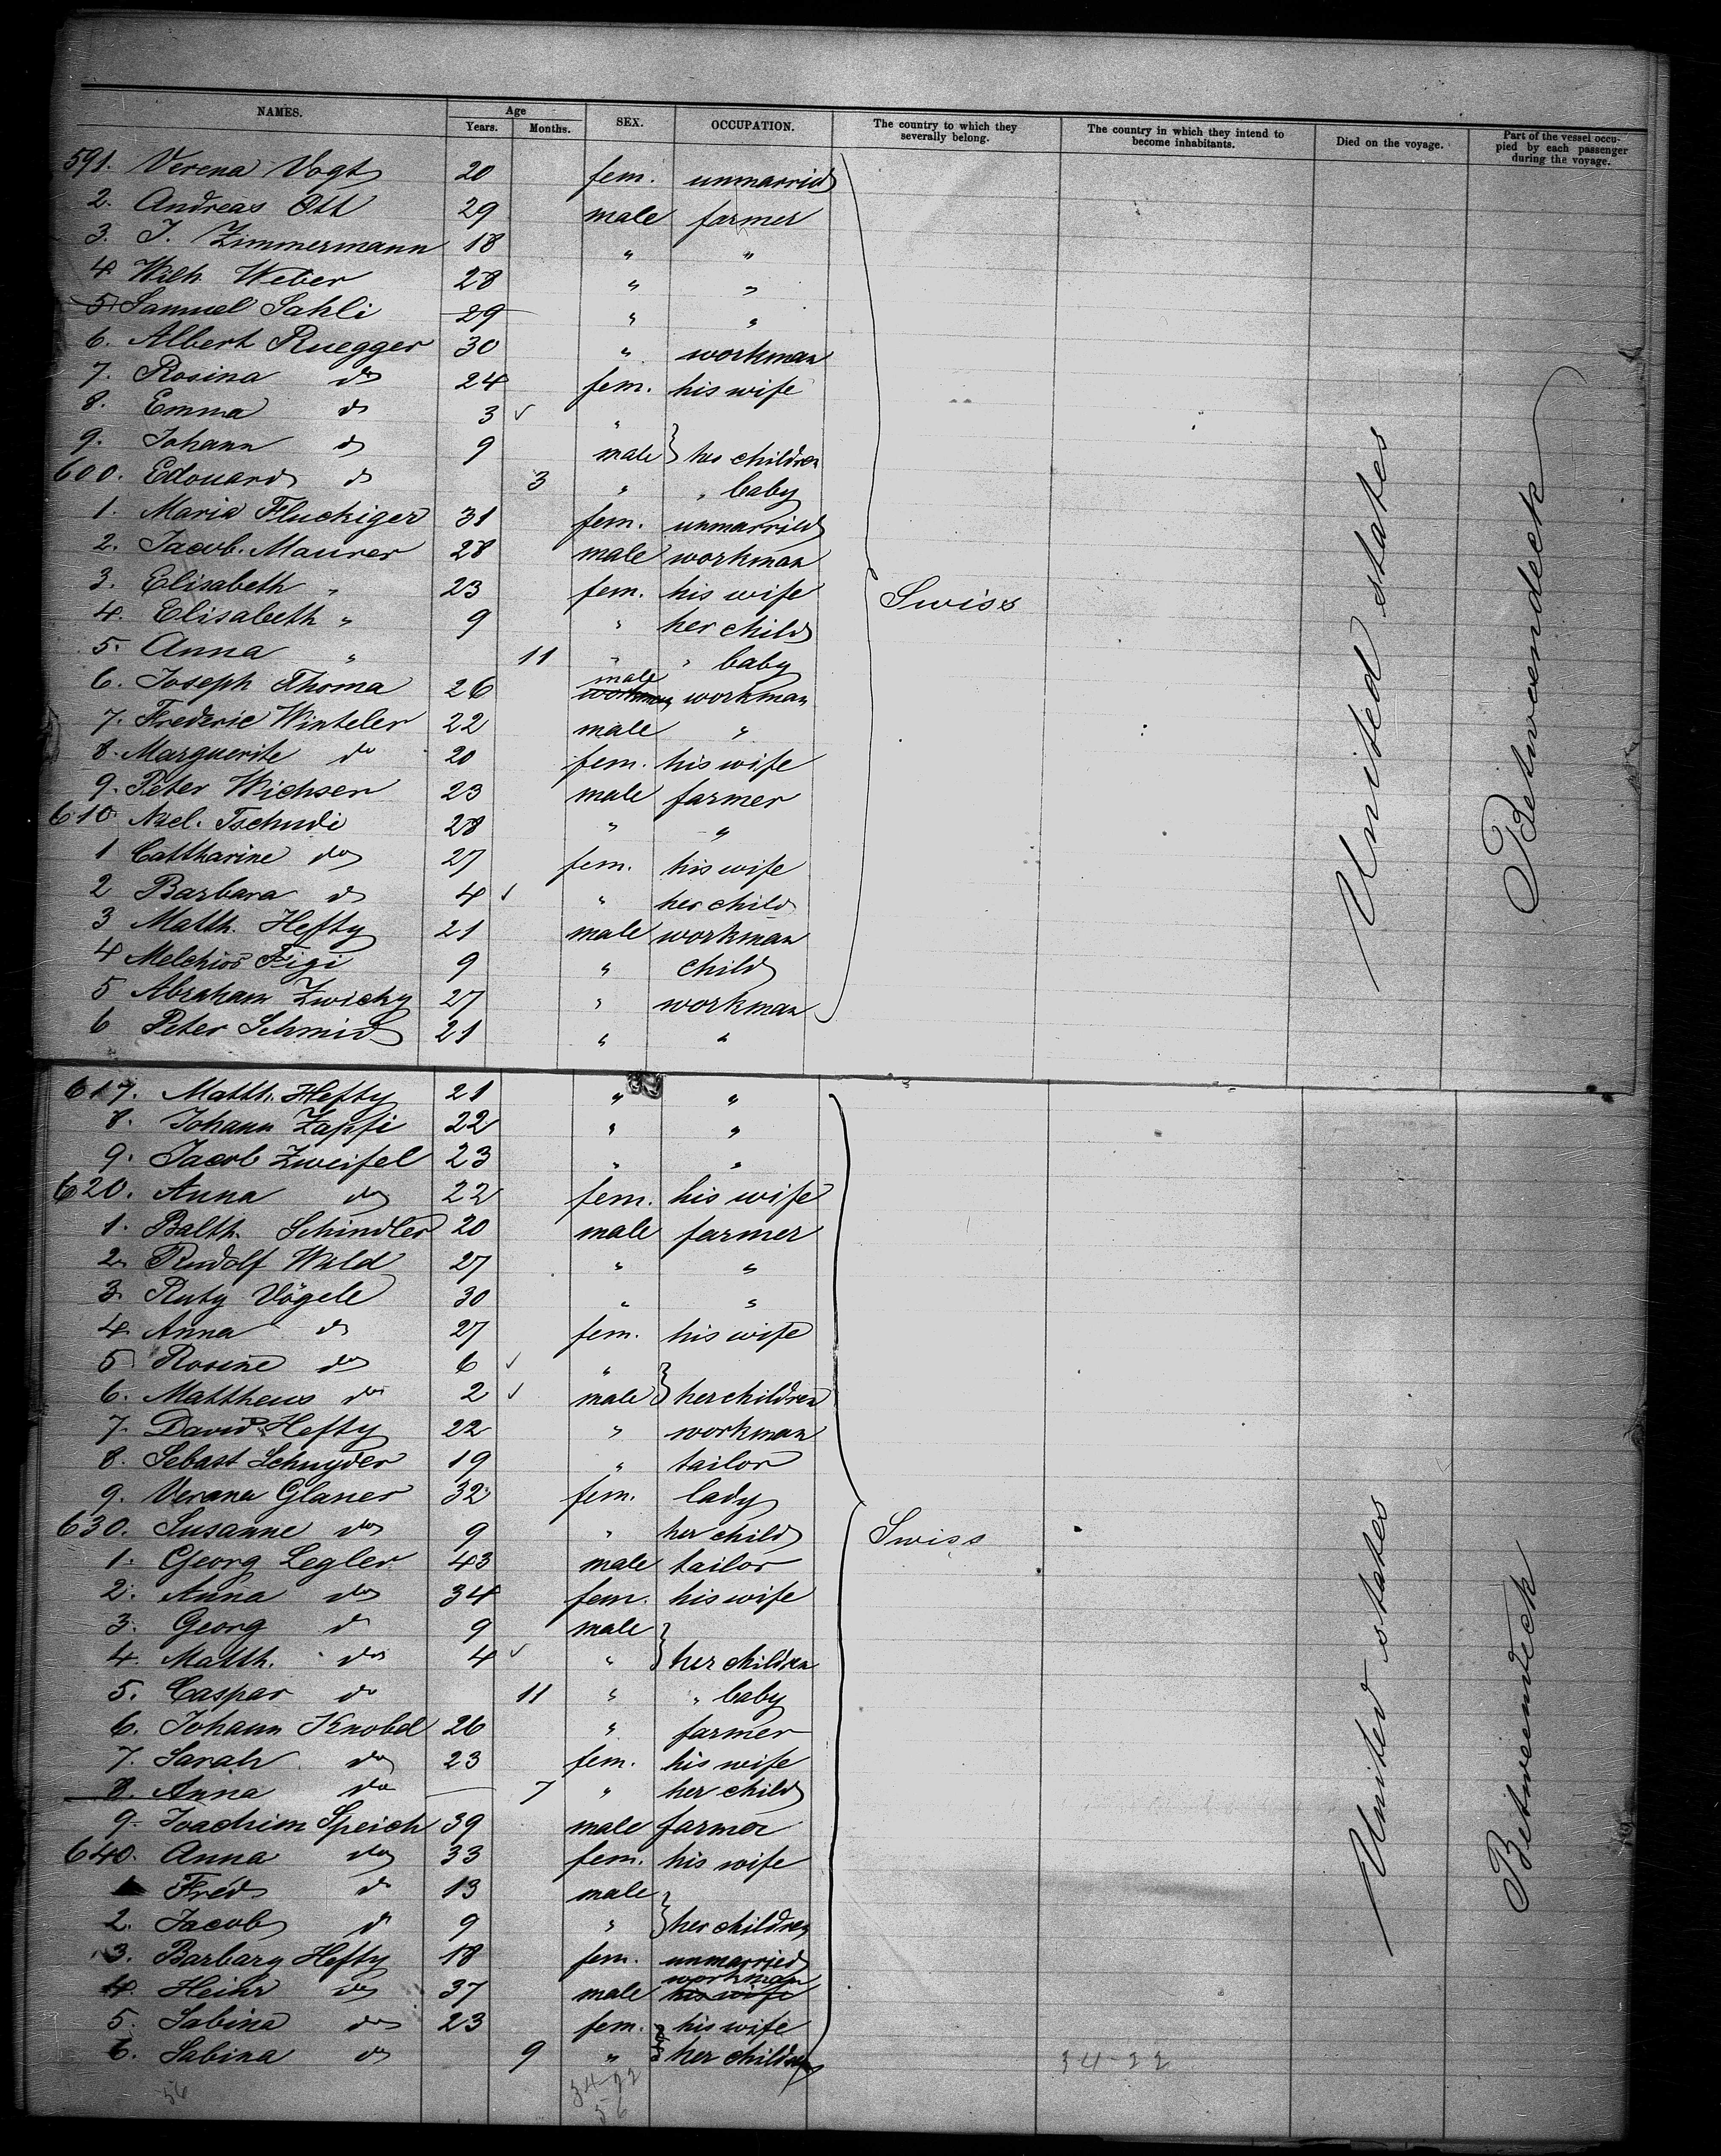 NAMES. Age Years. Months. SEX. OCCUPATION. The country to which they severally belong. The country in which they intend to become inhabitants. Died on the voyage. Part of the vessel occupied by each passenger during the voyage.
591. Verena Vogt 20 fem. unmarried
2. Andreas Ott 29 male farmer
3. J. Zimmermann 18 " "
4 Wilh. Weber 28 " "
5 Samuel Sahli 29 " "
6. Albert Ruegger 30 " workman
7. Rosina do 24 fem. his wife
8. Emma do 3 "
9. Johann do 9 male } her children
600. Edouard do 3 " " baby
1. Maria Fluckiger 31 fem. unmarried
2. Jacob. Maurer 28 male workman
3. Elisabeth " 23 fem. his wife
4. Elisabeth " 9 " her child
5. Anna " 11 " " baby
6. Joseph Thoma 26 male workman workman
7. Frederic Winteler 22 male "
8. Marguerite do 20 fem. his wife
9. Peter Wichser 23 male farmer
610 Tschudi 28 " "
1 Cattharine do 27 fem. his wife
2 Barbara do 4 " her child
3 Matth. Hefty 21 male workman
4 Melchior Figi 9 " child
5 Abraham Zwicky 27 " workman
6 Peter Schmid 21 " "
Swiss
United states
Betweendeck
617. Matth. Hefty 21 " "
8. Johann Zapfi 22 " "
9. Jacob Zweifel 23 " "
620. Anna do 22 fem. his wife
1. Balth. Schindler 20 male farmer
2. Rudolf Wald 27 " "
3. Ruty Vögele 30 " "
4. Anna do 27 fem. his wife
5 Rosine do 6 "
6. Mattheus do 2 male } her children
7. David Hefty 22 " workman
8. Sebast Schnyder 19 " tailor
9. Verana Glaner 32 fem. lady
630. Susanne do 9 " her child
1. Georg Legler 43 male tailor
2. Anna do 34 fem. his wife
3. Georg do 9 male
4. Matth. do 4 " } her children
5. Caspar do 11 " " baby
6. Johann Knobel 26 " farmer
7. Sarah do 23 fem. his wife
8. Anna do 7 " her child
9. Joachim Speich 39 male farmer
640. Anna do 33 fem. his wife
1 Fred do 13 male
2. Jacob do 9 " } her children
3. Barbary Hefty 18 fem. unmarried
4. Heinr do 37 male workman his wife
5. Sabina do 23 fem. his wife
6. Sabina do 9 " her children
Swiss
United states
Betweendeck
34-22
56
34-22
56